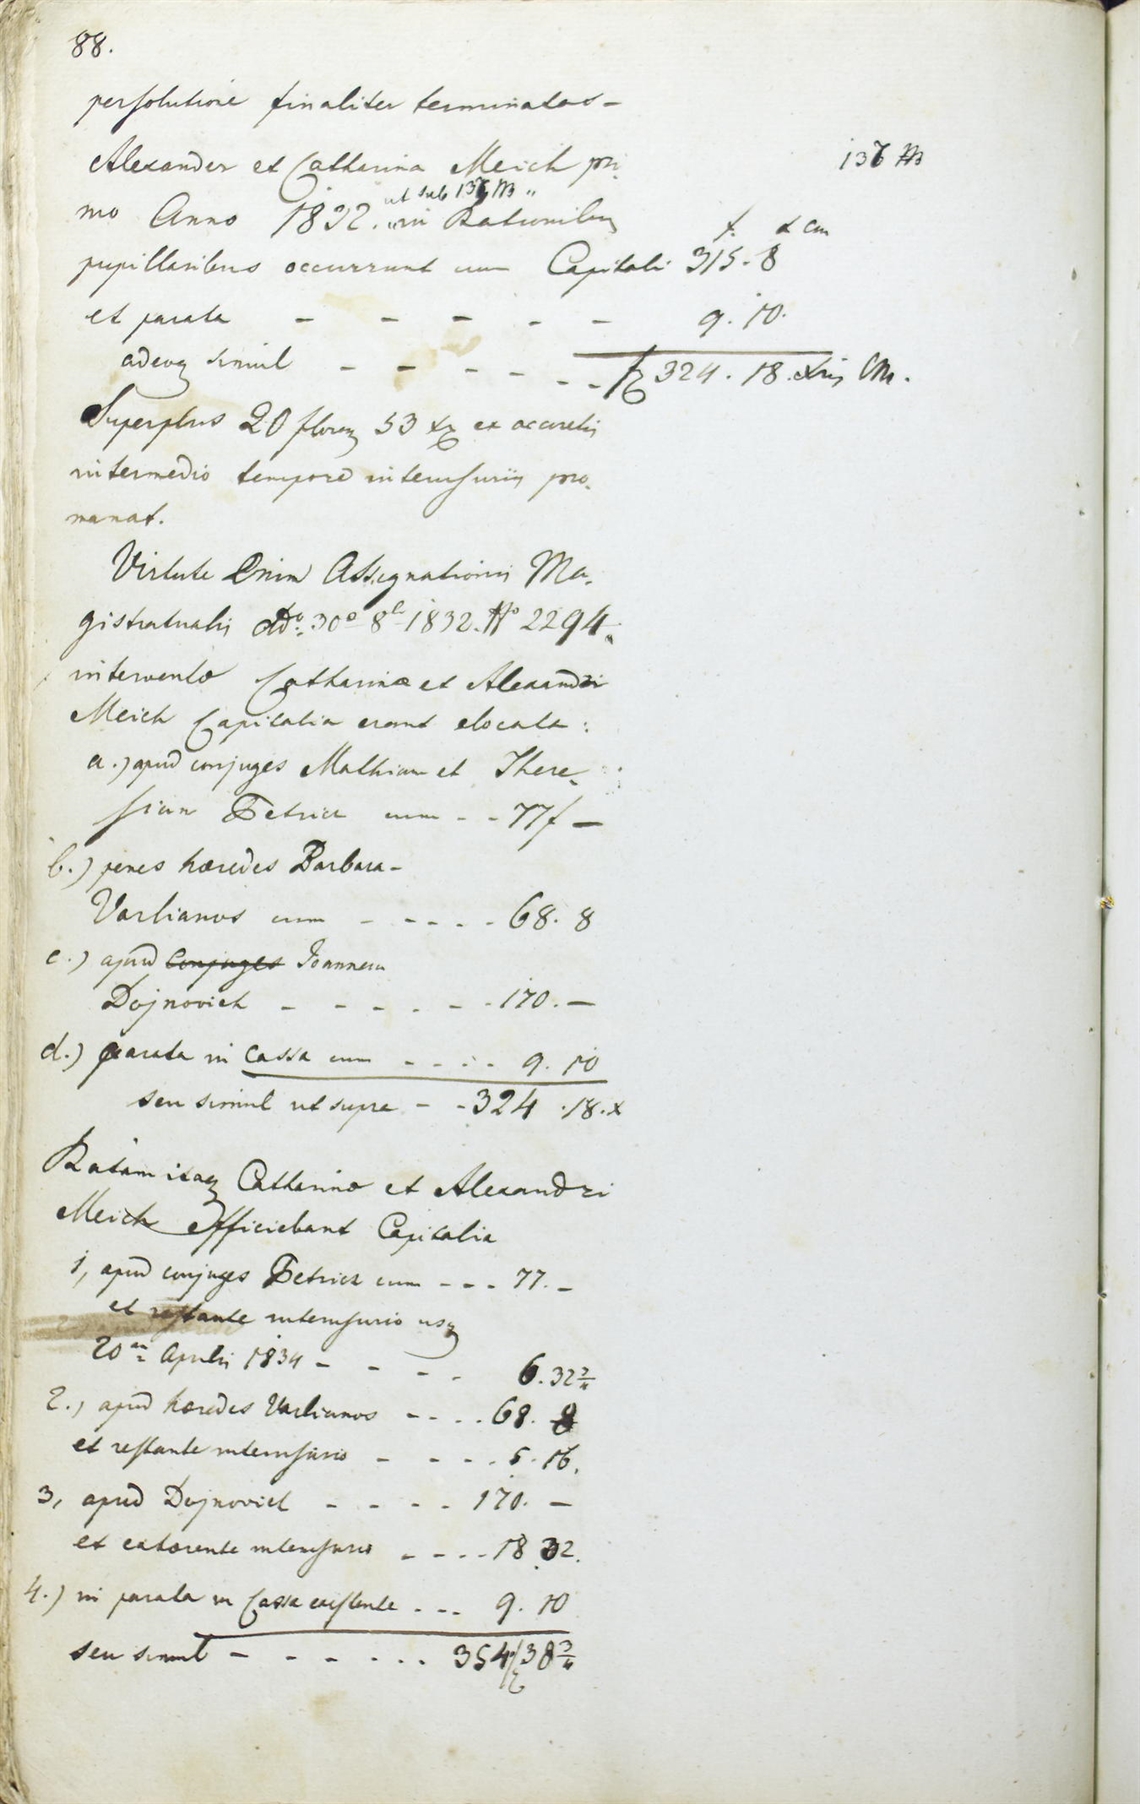 88.
persolutione finaliter terminatas –
Alexander et Catharina Meich pri-
136 M
ut sub 136 M
mo Anno 1832. in Rationibus
f. x Cm
pupillaribus occurrunt cum Capitali 315. 8
et parata – – – – – 9. 10.
adeoq simul – – – – – – 324. 18. xris Cm.
Superplus 20 floren 53 xr ex accretis
intermedio tempore interusuriis pro-
manat.
Virtute enim Assignationis Ma-
gistratualis ddo. 30o 8b 1832. No 2294
interventa Catharinae et Alexandri
Meich Capitalia erant elocata :
a.) apud conjuges Mathiam et There-
siam Petrich cum – – 77f –
b.) penes haeredes Barbara –
Varlianos cum – – – – – 68. 8
c.) apud conjuges Joannem
Dojnovich – – – – – – 170. –
d.) parata in Cassa cum – – – – 9. 10
seu simul ut supra – – 324. 18. x
Ratam itaq Catharinae et Alexandri
Meich efficiebant Capitalia
1, apud conjuges Petrich cum – – – 77. –
et restante interusurio usq
20am Aprilis 1834 – – – – 6. 32 3/4
2., apud haeredes Varlianos – – – – 68. 8
et restante interusurio – – – – 5. 16.
3, apud Dojnovich – – – – 170. –
et exhaerente interusurio – – – – 18 32.
4.) in parata in Cassa existente – – – 9. 10
seu simul – – – – – – 354 f 38 3/4